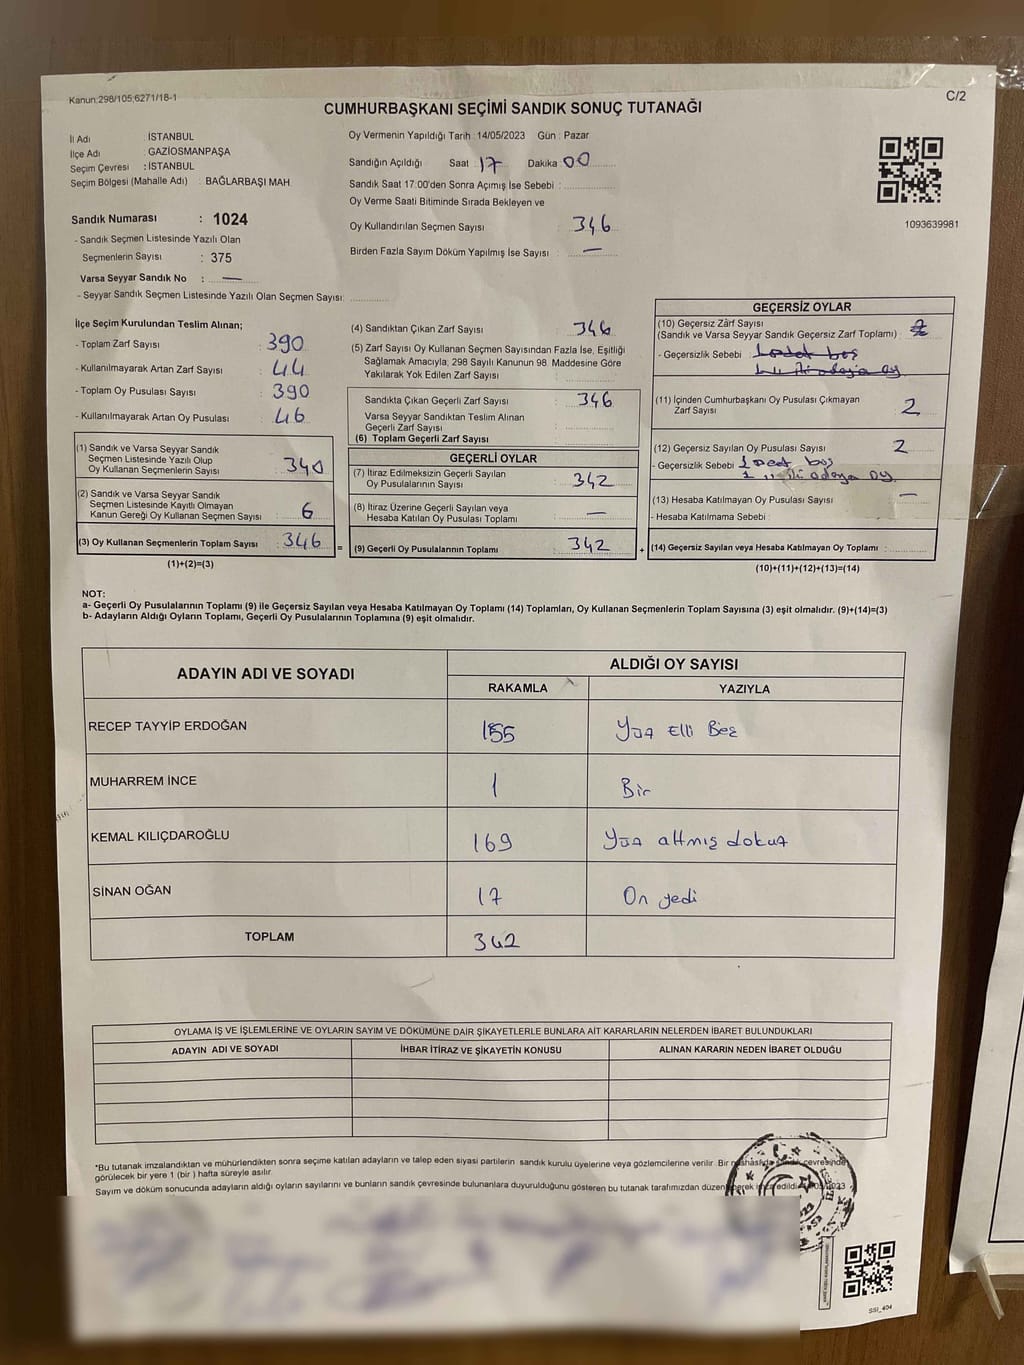 Kanun:298/105;6271/18-1
C/2
CUMHURBAŞKANI SEÇİMİ SANDIK SONUÇ TUTANAĞI
İl Adı : İSTANBUL
İlçe Adı : GAZİOSMANPAŞA
Seçim Çevresi : İSTANBUL
Seçim Bölgesi (Mahalle Adı) : BAĞLARBAŞI MAH.
Sandık Numarası : 1024
- Sandık Seçmen Listesinde Yazılı Olan
Seçmenlerin Sayısı : 375
Varsa Seyyar Sandık No : —
- Seyyar Sandık Seçmen Listesinde Yazılı Olan Seçmen Sayısı:
Oy Vermenin Yapıldığı Tarih : 14/05/2023 Gün : Pazar
Sandığın Açıldığı Saat 17 Dakika 00
Sandık Saat 17:00'den Sonra Açımış İse Sebebi :
Oy Verme Saati Bitiminde Sırada Bekleyen ve
Oy Kullandırılan Seçmen Sayısı : 346
Birden Fazla Sayım Döküm Yapılmış İse Sayısı : —
1093639981
İlçe Seçim Kurulundan Teslim Alınan;
- Toplam Zarf Sayısı : 390
- Kullanılmayarak Artan Zarf Sayısı : 44
- Toplam Oy Pusulası Sayısı : 390
- Kullanılmayarak Artan Oy Pusulası : 46
(1) Sandık ve Varsa Seyyar Sandık
Seçmen Listesinde Yazılı Olup
Oy Kullanan Seçmenlerin Sayısı : 340
(2) Sandık ve Varsa Seyyar Sandık
Seçmen Listesinde Kayıtlı Olmayan
Kanun Gereği Oy Kullanan Seçmen Sayısı : 6
(3) Oy Kullanan Seçmenlerin Toplam Sayısı : 346
(1)+(2)=(3)
=
(4) Sandıktan Çıkan Zarf Sayısı : 346
(5) Zarf Sayısı Oy Kullanan Seçmen Sayısından Fazla İse, Eşitliği
Sağlamak Amacıyla; 298 Sayılı Kanunun 98. Maddesine Göre
Yakılarak Yok Edilen Zarf Sayısı :
Sandıkta Çıkan Geçerli Zarf Sayısı : 346
Varsa Seyyar Sandıktan Teslim Alınan
Geçerli Zarf Sayısı :
(6) Toplam Geçerli Zarf Sayısı :
GEÇERLİ OYLAR
(7) İtiraz Edilmeksizin Geçerli Sayılan
Oy Pusulalarının Sayısı : 342
(8) İtiraz Üzerine Geçerli Sayılan veya
Hesaba Katılan Oy Pusulası Toplamı : —
(9) Geçerli Oy Pusulalarının Toplamı : 342
+
GEÇERSİZ OYLAR
(10) Geçersiz Zarf Sayısı
(Sandık ve Varsa Seyyar Sandık Geçersiz Zarf Toplamı) : 2
- Geçersizlik Sebebi :
(11) İçinden Cumhurbaşkanı Oy Pusulası Çıkmayan
Zarf Sayısı : 2
(12) Geçersiz Sayılan Oy Pusulası Sayısı : 2
- Geçersizlik Sebebi 1 adet boş
adaya oy
(13) Hesaba Katılmayan Oy Pusulası Sayısı : —
- Hesaba Katılmama Sebebi :
(14) Geçersiz Sayılan veya Hesaba Katılmayan Oy Toplamı :
(10)+(11)+(12)+(13)=(14)
NOT:
a- Geçerli Oy Pusulalarının Toplamı (9) ile Geçersiz Sayılan veya Hesaba Katılmayan Oy Toplamı (14) Toplamları, Oy Kullanan Seçmenlerin Toplam Sayısına (3) eşit olmalıdır. (9)+(14)=(3)
b- Adayların Aldığı Oyların Toplamı, Geçerli Oy Pusulalarının Toplamına (9) eşit olmalıdır.
ADAYIN ADI VE SOYADI ALDIĞI OY SAYISI
RAKAMLA YAZIYLA
RECEP TAYYİP ERDOĞAN 155 Yüz Elli Beş
MUHARREM İNCE 1 Bir
KEMAL KILIÇDAROĞLU 169 Yüz altmış dokuz
SİNAN OĞAN 17 On yedi
TOPLAM 342
OYLAMA İŞ VE İŞLEMLERİNE VE OYLARIN SAYIM VE DÖKÜMÜNE DAİR ŞİKAYETLERLE BUNLARA AİT KARARLARIN NELERDEN İBARET BULUNDUKLARI
ADAYIN ADI VE SOYADI İHBAR İTİRAZ VE ŞİKAYETİN KONUSU ALINAN KARARIN NEDEN İBARET OLDUĞU
*Bu tutanak imzalandıktan ve mühürlendikten sonra seçime katılan adayların ve talep eden siyasi partilerin sandık kurulu üyelerine veya gözlemcilerine verilir. Bir nüshası da sandık çevresinde
görülecek bir yere 1 (bir) hafta süreyle asılır.
Sayım ve döküm sonucunda adayların aldığı oyların sayılarını ve bunların sandık çevresinde bulunanlara duyurulduğunu gösteren bu tutanak tarafımızdan düzenlenerek imza edildi.
SSI_404